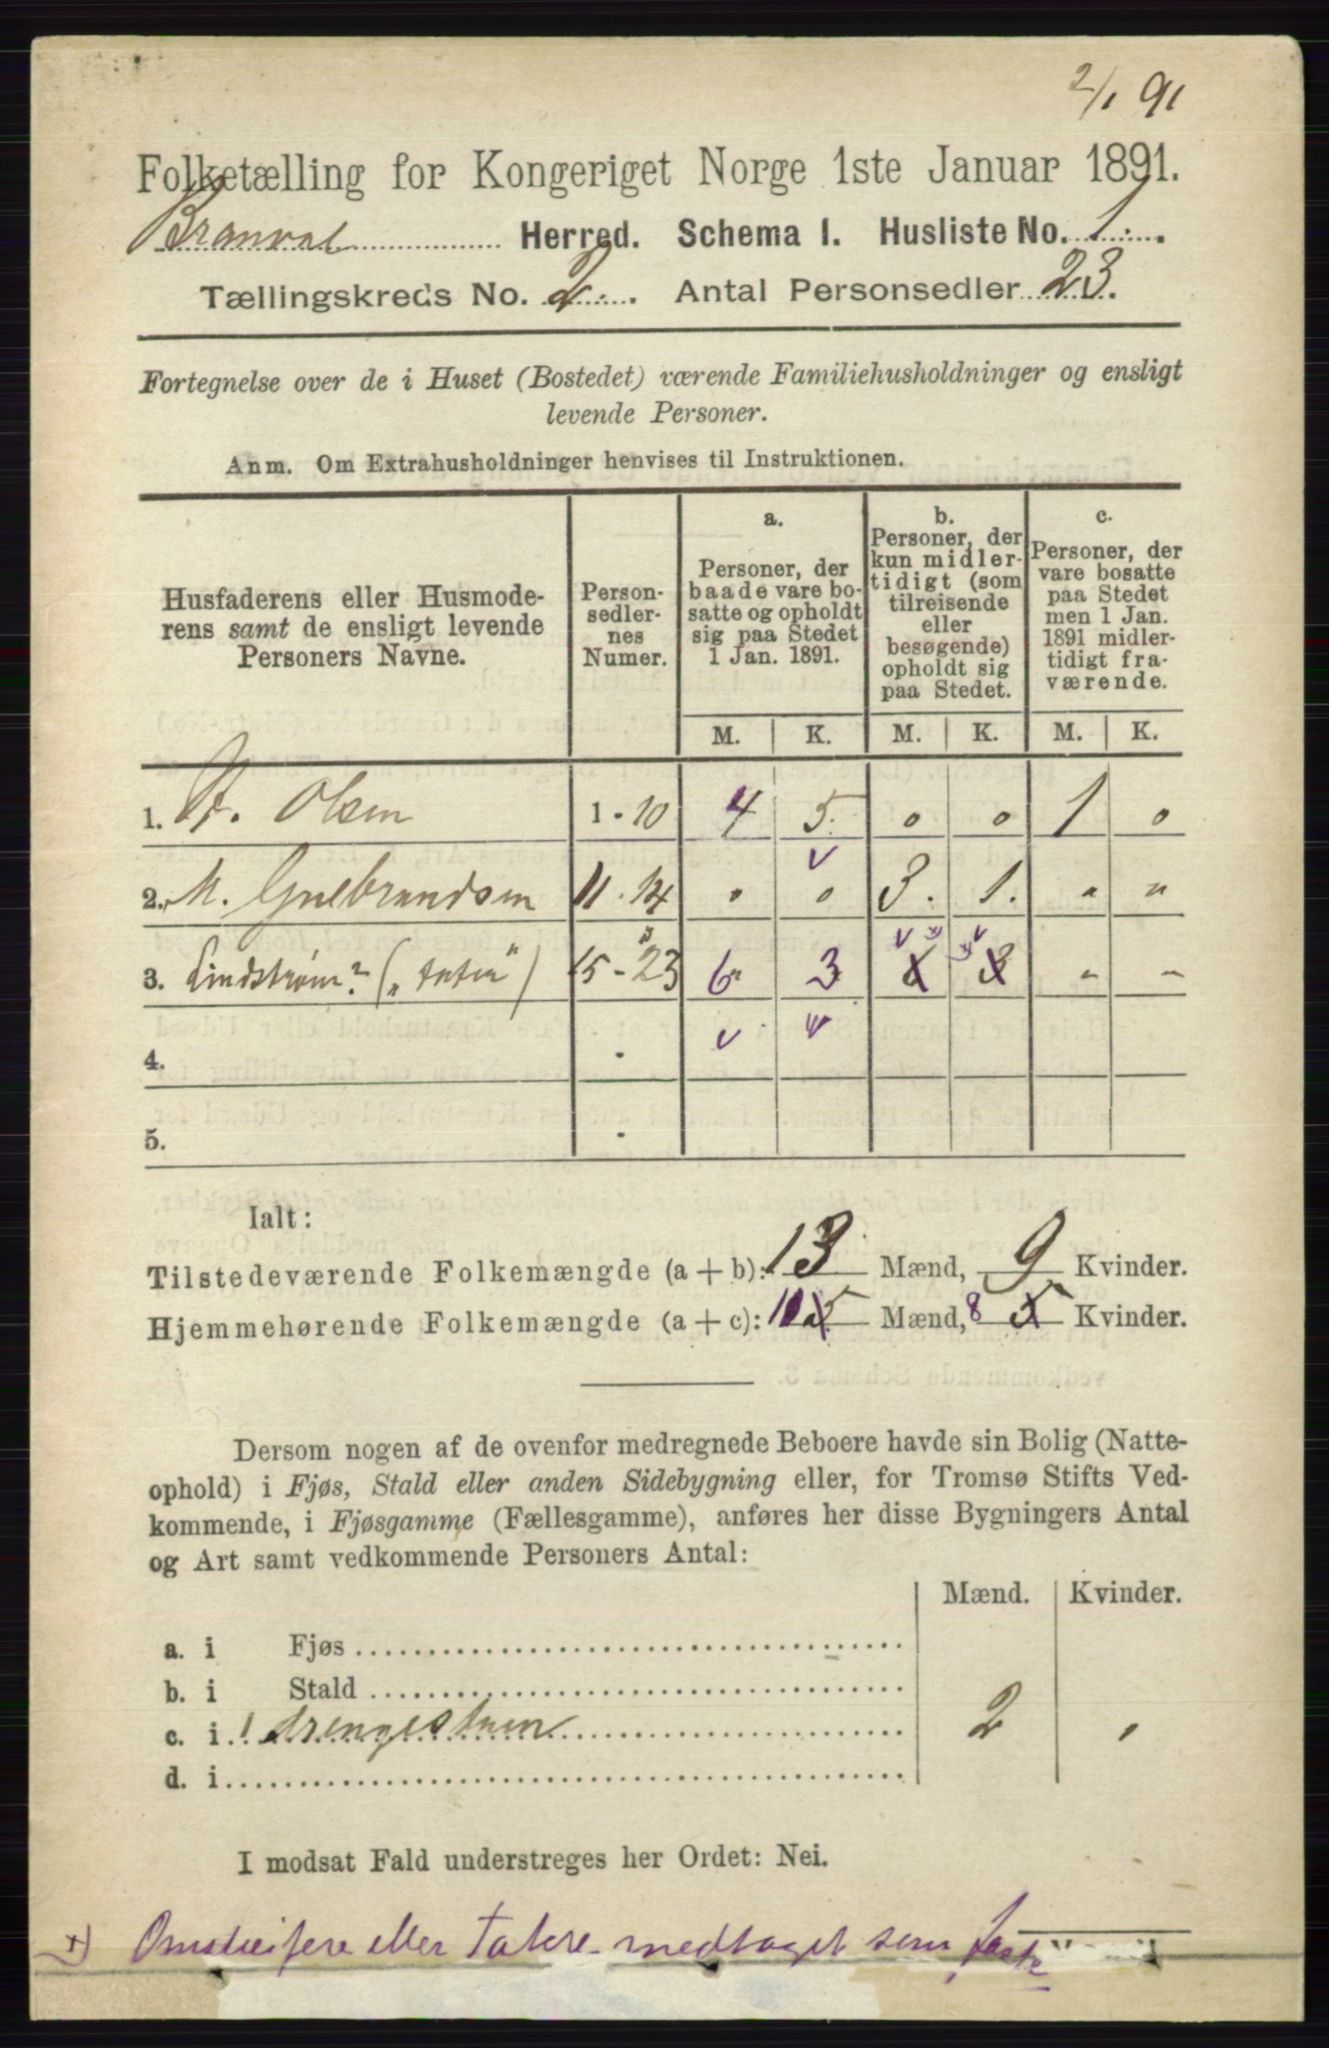 2/1 91
Folketælling for Kongeriget Norge 1ste Januar 1891.
Branval Herred. Schema I. Husliste No. 1.
Tællingskreds No. 2. Antal Personsedler 23.
Fortegnelse over de i Huset (Bostedet) værende Familiehusholdninger og ensligt
levende Personer.
Anm. Om Extrahusholdninger henvises til Instruktionen.
Husfaderens eller Husmode-
rens samt de ensligt levende
Personers Navne.
Person-
sedler-
nes
Numer.
a.
Personer, der
baade vare bo-
satte og opholdt
sig paa Stedet
1 Jan. 1891.
b.
Personer, der
kun midler-
tidigt (som
tilreisende
eller
besøgende)
opholdt sig
paa Stedet.
c.
Personer, der
vare bosatte
paa Stedet
men 1 Jan.
1891 midler-
tidigt fra-
værende.
M. K. M. K. M. K.
1. Olsen 1 - 10 4 5. 0 0 1 0
2. M. Gulbrandsen 11 - 14 " 0 3. 1. " "
3. Lindstrøm? („tater") 15 - 23 6 3 - -
4. -
5. -
Ialt:
Tilstedeværende Folkemængde (a + b): 13 Mænd, 9 Kvinder.
Hjemmehørende Folkemængde (a + c): 11 5 Mænd, 8 5 Kvinder.
Dersom nogen af de ovenfor medregnede Beboere havde sin Bolig (Natte-
ophold) i Fjøs, Stald eller anden Sidebygning eller, for Tromsø Stifts Ved-
kommende, i Fjøsgamme (Fællesgamme), anføres her disse Bygningers Antal
og Art samt vedkommende Personers Antal:
Mænd. Kvinder.
a. i Fjøs
b. i Stald
c. i 1 drengestuen 2 "
d. i
I modsat Fald understreges her Ordet: Nei.
x) Omstreifere eller Tatere medtaget som faste